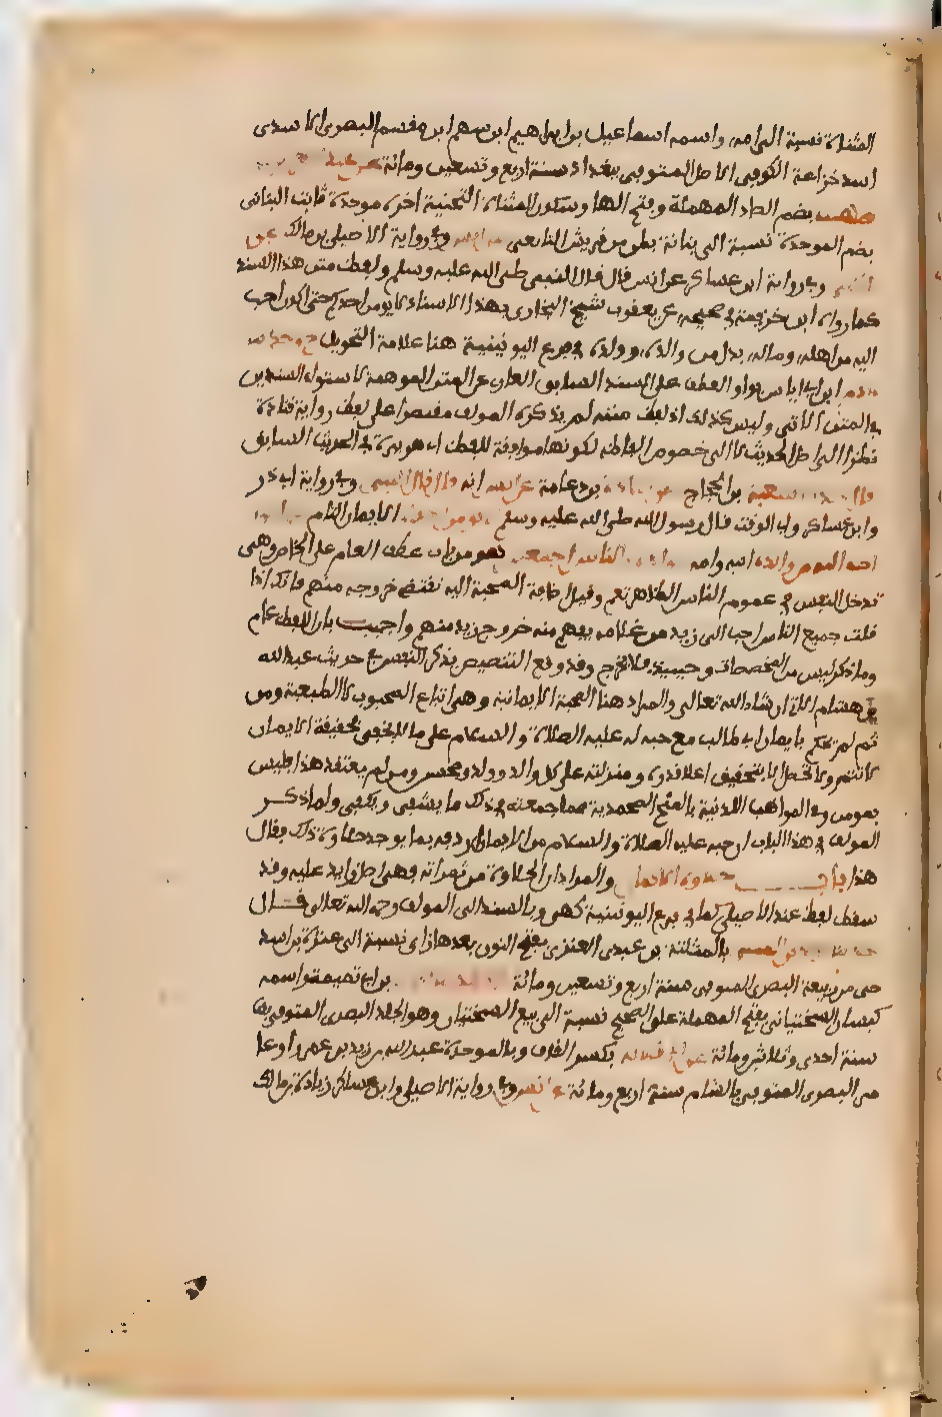 المثناة نسبة الى امه واسمه اسماعيل بن ابراهيم ابن سهم ابن مقسم البصرى الاسدى
اسد خزاعة الكوفي الاصل المتوفى ببغداد سنة اربع وتسعين ومائة عن عبد العزيز بن
صهيب بضم الصاد المهملة وبفتح الها وسكون المثناة التحتية اخره موحدة البنانى
بضم الموحدة نسبة الى بنانة بطن من قريش التابعى وفي رواية الاصيلى بن مالك عن
وفي رواية ابن عساكر عن انس قال قال النبي صلى الله عليه وسلم ولفظ متن هذا السند
كما رواه ابن خزيمة في صحيحه عن يعقوب شيخ البخارى بهذا الاسناد لا يومن احدكم حتى اكون احب
اليه من اهله وماله بدل من والده وولده في فرع اليونينية هنا علامة التحويل ح
ابن ابى اياس بواو العطف على السند السابق العارى عن المتن الموهمة لاستواء السندين
في المتن الاتي وليس كذلك اذ لفظ متنه لم يذكره المولف مقتصرا على لفظ رواية قتادة
نظرا الى اصل الحديث لا الى خصوص الفاظه لكونها موافقة للفظ ابى هريرة في الحديث السابق
قال شعبة بن الحجاج عن قتادة بن دعامة عن انس انه قال قال النبي وفي رواية ابى ذر
وابن عساكر وابى الوقت قال رسول الله صلى الله عليه وسلم لا يومن احدكم الايمان التام
احب اليه من والده ابيه وامه والناس اجمعين هو من باب عطف العام على الخاص وهى
تدخل النفس في عموم الناس الظاهر نعم وقيل اضافة المحبة اليه تقتضى خروجه منهم فانك اذا
قلت جميع الناس احب الى زيد من غلامه يفهم منه خروج زيد منهم واجيب بان اللفظ عام
وما ذكر ليس من المخصصات وحينئذ فلا تخرج وقد وقع التنصيص بذكر النفس في حديث عبد الله
بن هشام الاتى ان شاء الله تعالى والمراد هنا المحبة الايمانية وهى اتباع المحبوب لا الطبيعية ومن
ثم لم يحكم بايمان ابى طالب مع حبه له عليه الصلاة والسلام على ما لا يخفى فحقيقة الايمان
لا تتم ولا تحصل الا بتحقيق اعلا قدره ومنزلته على كل والد وولد ومحسن ومن لم يعتقد هذا فليس
بمومن وفي المواهب اللدنية بالمنح المحمدية مما جمعته في ذلك ما يشفى ويكفى ولما ذكر
المولف في هذا الباب ان حبه عليه الصلاة والسلام من الايمان اردفه بما يوجد حلاوة ذلك فقال
هذا باب حلاوة الايمان والمراد ان الحلاوة من ثمراته فهى اصل زايد عليه وقد
سقط لفظ عند الاصيلى كما في فرع اليونينية كهى وبالسند الى المولف رحمه الله تعالى قال
بالمثلثة بن عبيد العنزى بفتح النون بعدها زاى نسبة الى عنزة بن اسد
حى من ربيعة البصرى المتوفى سنة اربع وتسعين ومائة بن ابى تميمة واسمه
كيسان السختيانى بفتح المهملة على الصحيح نسبة الى بيع السختيان وهو الجلد البصرى المتوفى بها
سنة احدى وثلاثين ومائة عن ابى قلابة بكسر القاف وبالموحدة عبد الله بن زيد بن عمرو او عا
مر البصرى المتوفى بالشام سنة اربع ومائة عن انس وفي رواية الاصيلى وابن عساكر زيادة بن مالك